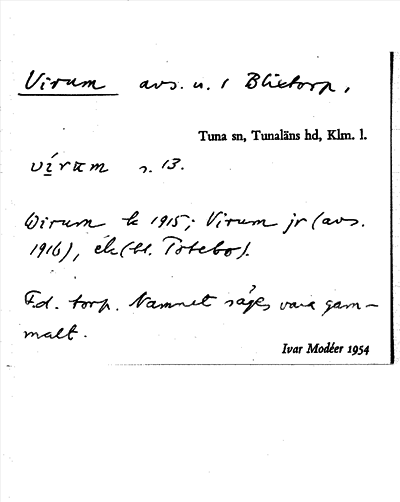 Virum avs. u. 1 Blixtorp,
Tuna sn, Tunaläns hd, Klm. l.
vírum s. 13.
Wirum tk 1915; Virum jr (avs.
1916), ék (bl. Totebo).
F.d. torp. Namnet säges vara gam-
malt.
Ivar Modéer 1954